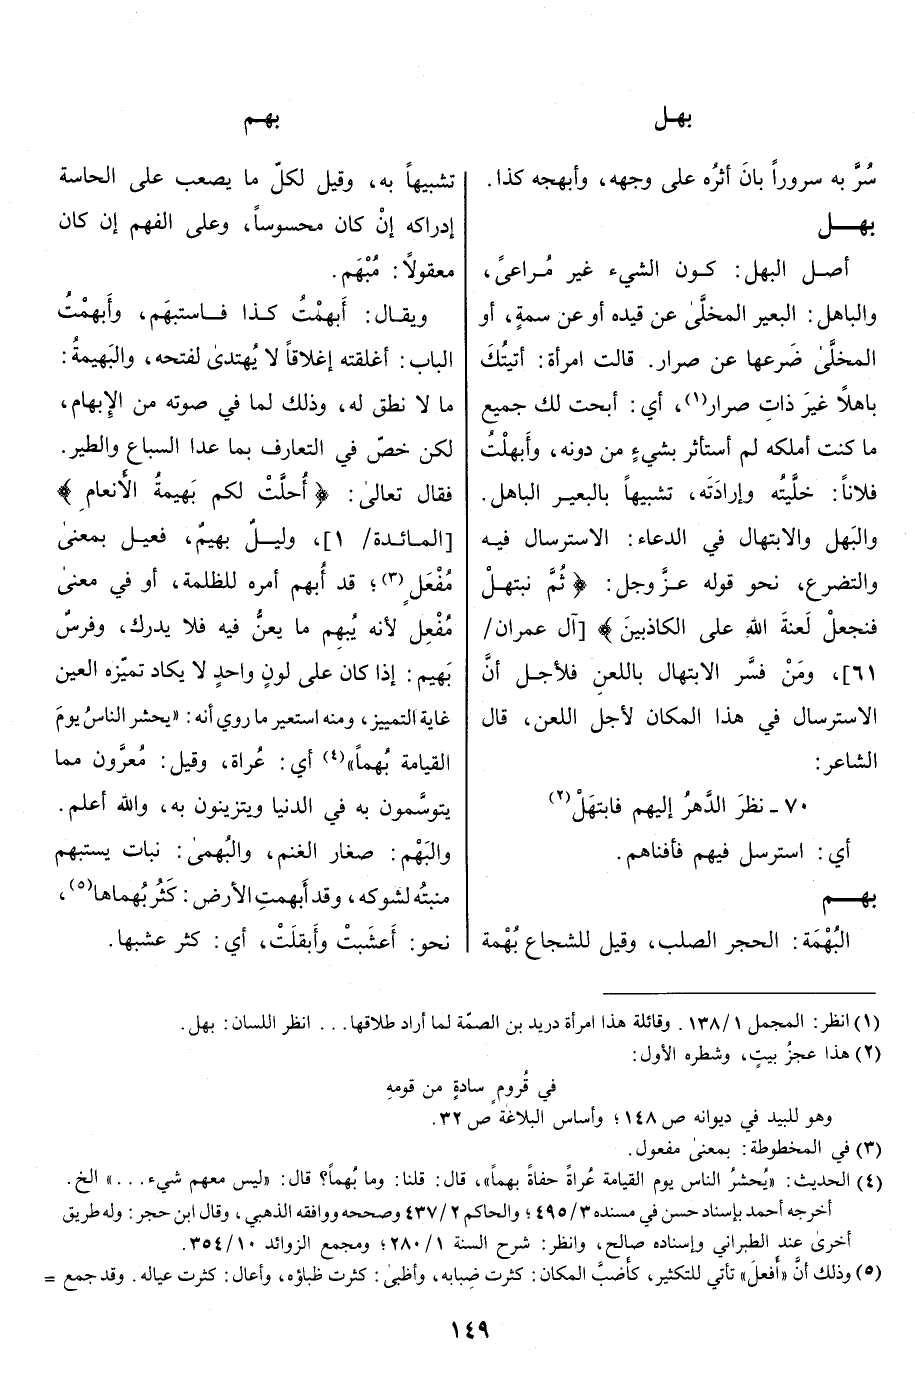 بهل
بهم
سُرَّ به سروراً بانَ أثرُه على وجهه، وأبهجه كذا.
بهل
أصل البهل: كون الشيء غير مُراعىً،
والباهل: البعير المخلَّىٰ عن قيده أو عن سمةٍ، أو
المخلَّىٰ ضَرعها عن صرار. قالت امرأة: أتيتُكَ
باهلاً غيرَ ذاتِ صرار(١)، أي: أبحت لك جميع
ما كنت أملكه لم أستأثر بشيءٍ من دونه، وأبهلْتُ
فلاناً: خلَّيتُه وإرادَتَه، تشبيهاً بالبعير الباهل.
والبَهل والابتهال في الدعاء: الاسترسال فيه
والتضرع، نحو قوله عزَّ وجل: ﴿ ثُمَّ نبتهلْ
فنجعلْ لَعنةَ اللهِ على الكاذبينَ ﴾ [آل عمران/
٦١]، ومَنْ فسَّر الابتهال باللعنِ فلأجل أنَّ
الاسترسال في هذا المكان لأجل اللعن، قال
الشاعر:
٧٠ ـ نظرَ الدَّهرُ إليهم فابتهَلْ(٢)
أي: استرسل فيهم فأفناهم.
بهم
البُهْمَة: الحجر الصلب، وقيل للشجاع بُهْمة
تشبيهاً به، وقيل لكلّ ما يصعب على الحاسة
إدراكه إنْ كان محسوساً، وعلى الفهم إن كان
معقولاً: مُبْهَم.
ويقال: أَبهمْتُ كذا فاستبهَم، وأَبهمْتُ
الباب: أغلقته إغلاقاً لا يُهتدىٰ لفتحه، والبَهيمةُ:
ما لا نطق له، وذلك لما في صوته من الإبهام،
لكن خصّ في التعارف بما عدا السباع والطير.
فقال تعالىٰ: ﴿ أُحلَّتْ لكم بَهيمةُ الأَنعامِ ﴾
[المائدة/ ١]، وليلٌ بهيمٌ، فعيل بمعنىٰ
مُفْعَلٍ(٣)؛ قد أُبهم أمره للظلمة، أو في معنىٰ
مُفْعِل لأنه يُبهِم ما يعنُّ فيه فلا يدرك، وفرسٌ
بَهيم: إذا كان على لونٍ واحدٍ لا يكاد تميّزه العين
غاية التمييز، ومنه استعير ما روي أنه: «يحشر الناسُ يومَ
القيامة بُهماً»(٤) أي: عُراة، وقيل: معرَّون مما
يتوسَّمون به في الدنيا ويتزينون به، والله أعلم.
والبَهْم: صغار الغنم، والبُهمىٰ: نبات يستبهم
منبتُه لشوكه، وقد أَبهمتِ الأرض: كَثُر بُهماها(٥)،
نحو: أَعشَبتْ وأَبقلَتْ، أي: كثر عشبها.
(١) انظر: المجمل ١٣٨/١. وقائلة هذا امرأة دريد بن الصمّة لما أراد طلاقها... انظر اللسان: بهل.
(٢) هذا عجزُ بيتٍ، وشطره الأول:
في قُرومٍ سادةٍ من قومهِ
وهو للبيد في ديوانه ص ١٤٨؛ وأساس البلاغة ص ٣٢.
(٣) في المخطوطة: بمعنىٰ مفعول.
(٤) الحديث: «يُحشرُ الناس يوم القيامة عُراةً حفاةً بهماً»، قال: قلنا: وما بُهماً؟ قال: «ليس معهم شيء...» الخ.
أخرجه أحمد بإسناد حسن في مسنده ٤٩٥/٣؛ والحاكم ٤٣٧/٢ وصححه ووافقه الذهبي، وقال ابن حجر: وله طريق
أخرىٰ عند الطبراني وإسناده صالح، وانظر: شرح السنة ٢٨٠/١؛ ومجمع الزوائد ٣٥٤/١٠.
(٥) وذلك أنَّ «أَفعلَ» تأتي للتكثير، كأَضبَّ المكان: كثرت ضِبابه، وأظبىٰ: كثرت ظباؤه، وأعال: كثرت عياله. وقد جمع =
١٤٩